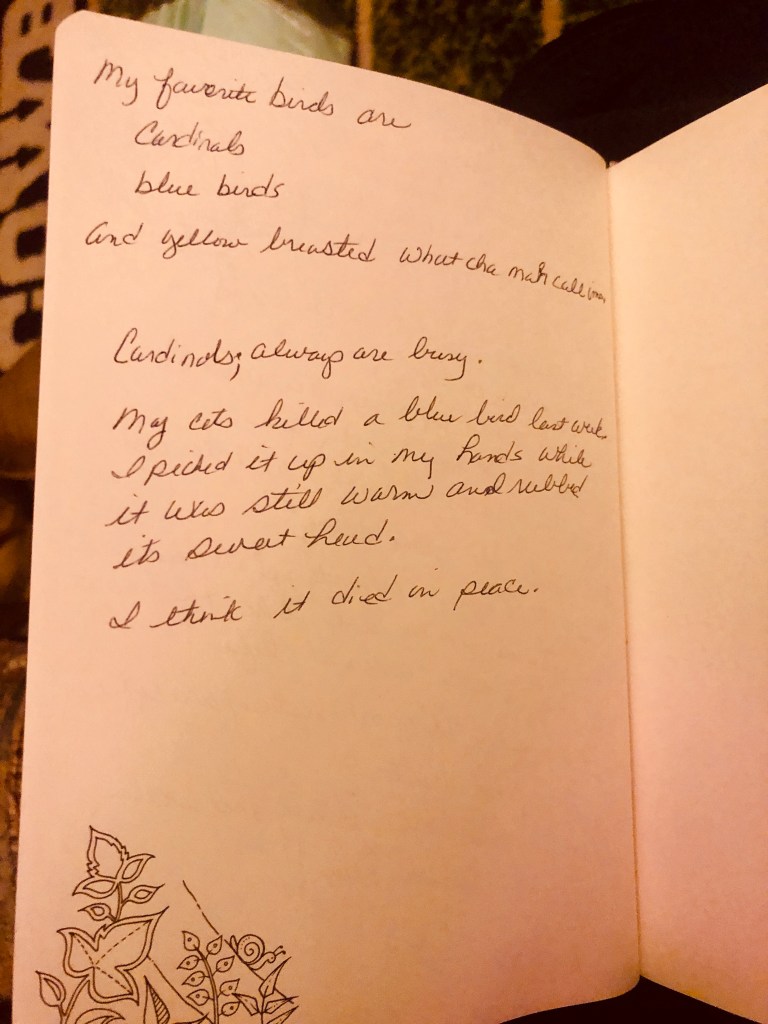 My favorite birds are
Cardinals
blue birds
and yellow breasted whatcha mah call
Cardinals; always are busy.
My cats killed a blue bird last week.
I picked it up in my hands while
it was still warm and rubbed
its sweet head.
I think it died in peace.